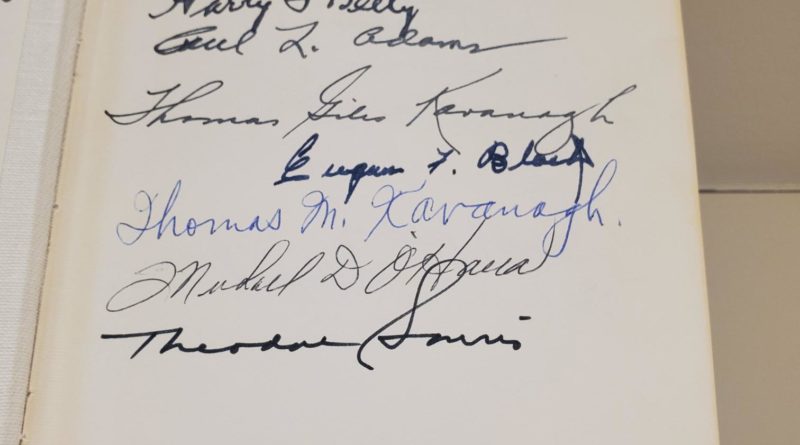 Harry F Kelly
Paul L. Adams
Thomas Giles Kavanagh
Eugene F. Black
Thomas M. Kavanagh.
Michael D O'Hara
Theodore Souris